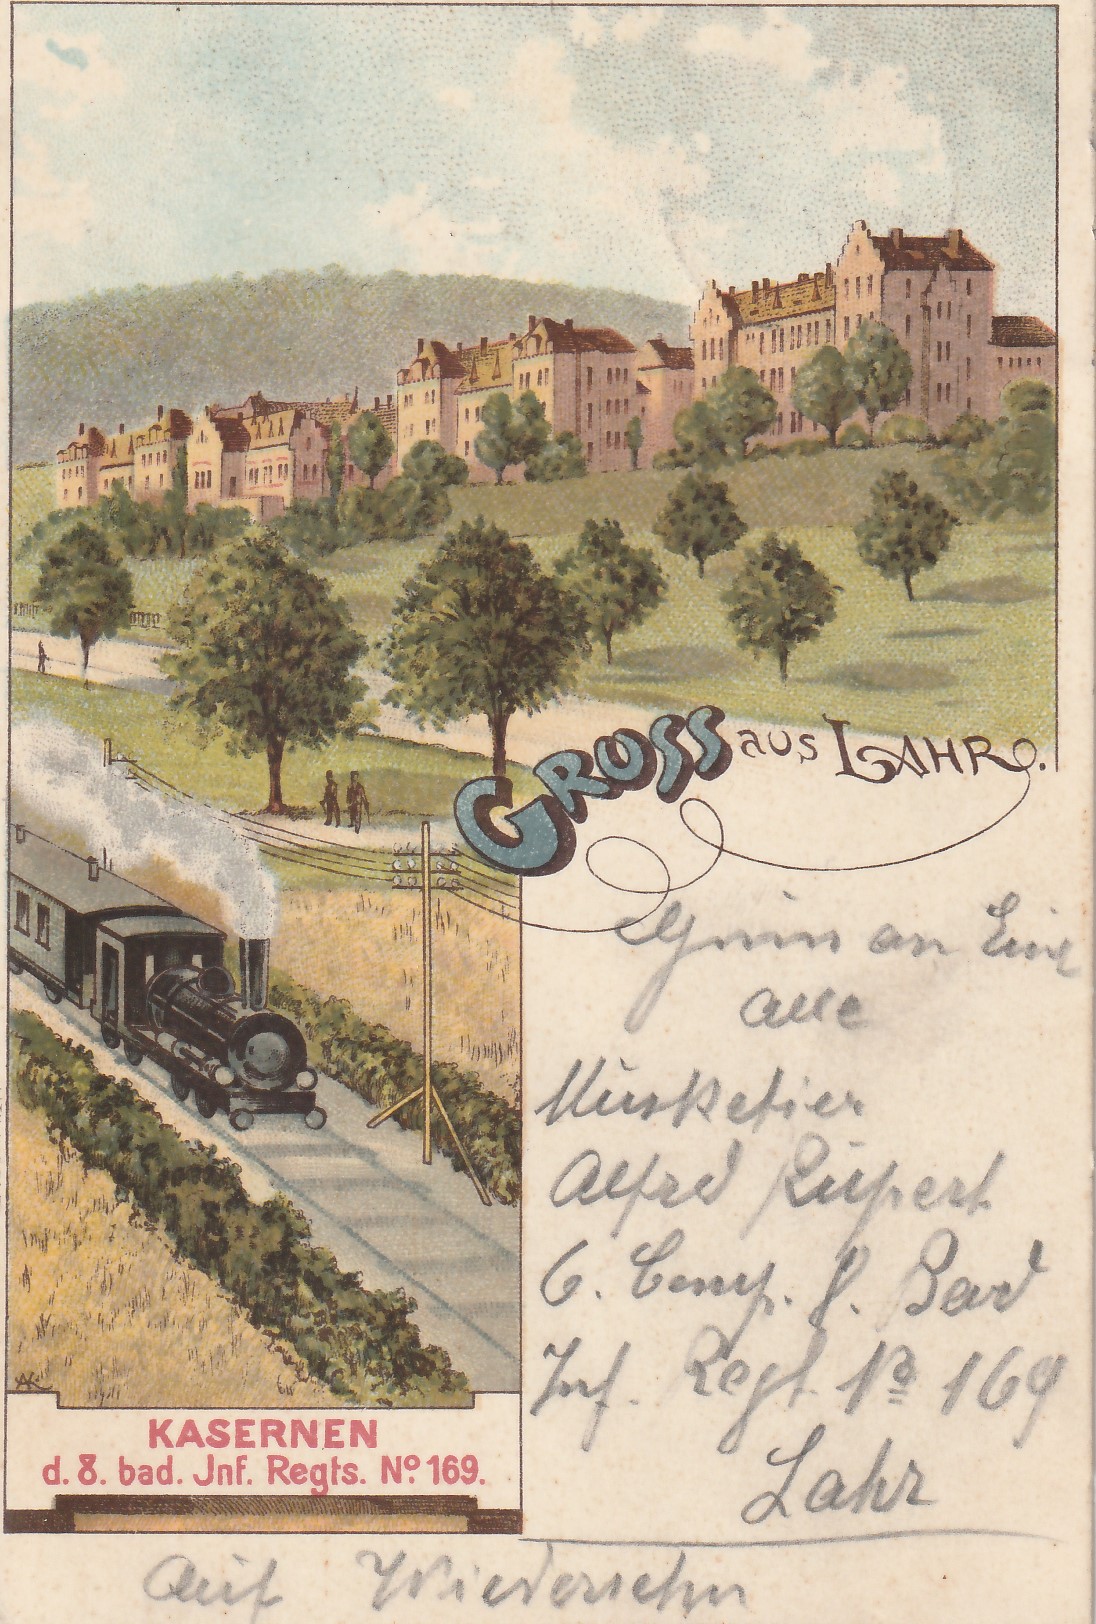 GRUSS aus LAHR.
an Eine
alle
Musketier
Alfred Rupert
6. Comp. 8. Bad
Inf. Regt. No 169
Lahr
AK
KASERNEN
d. 8. bad. Jnf. Regts. No. 169.
Auf Wiedersehn